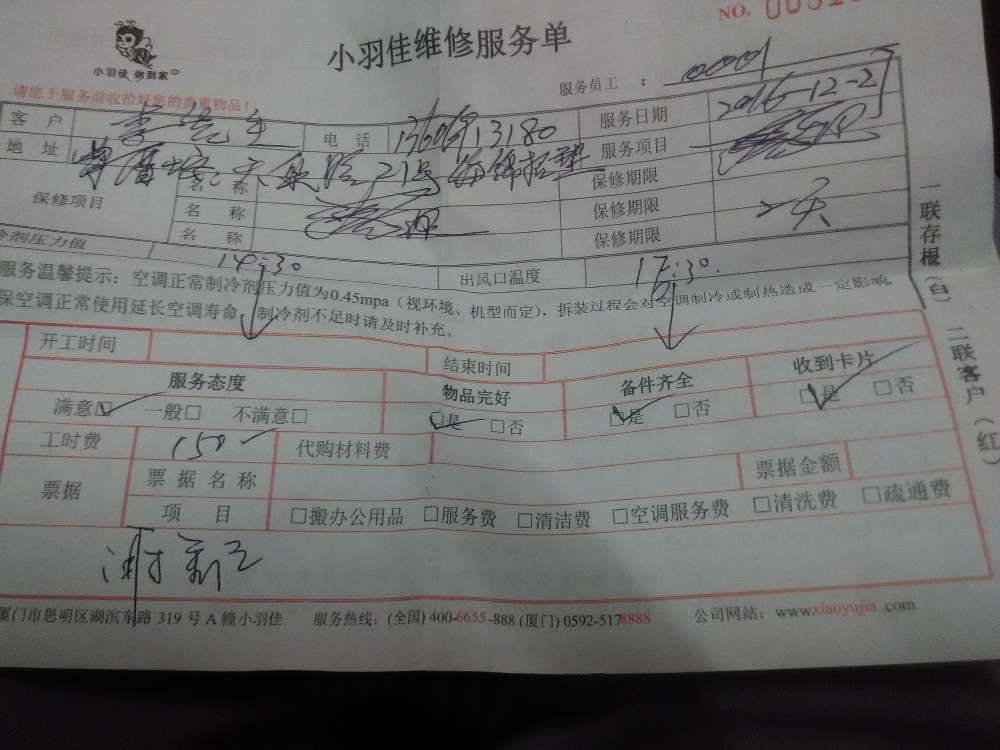 小羽佳 做到家
小羽佳维修服务单
NO.
请您于服务前收拾好您的贵重物品!
服务员工 :
客 户
电 话
服务日期 2016-12-2
地 址
服务项目
保修项目 名 称 保修期限
名 称 保修期限 天
名 称 保修期限
冷剂压力值 14:30 出风口温度 17:30
服务温馨提示: 空调正常制冷剂压力值为0.45mpa (视环境、机型而定), 拆装过程会对空调制冷或制热造成一定影响。
保空调正常使用延长空调寿命, 制冷剂不足时请及时补充。
开工时间 结束时间
服务态度 物品完好 备件齐全 收到卡片
满意☑ 一般□ 不满意□ ☑是 □否 ☑是 □否 ☑是 □否
工时费 150 代购材料费
票据 票 据 名 称 票据金额
项 目 □搬办公用品 □服务费 □清洁费 □空调服务费 □清洗费 □疏通费
厦门市思明区湖滨东路 319 号 A 幢小羽佳 服务热线: (全国) 400-6655-888 (厦门) 0592-5178888 公司网站: www.xiaoyujia.com
一联存根(白) 二联客户(红)